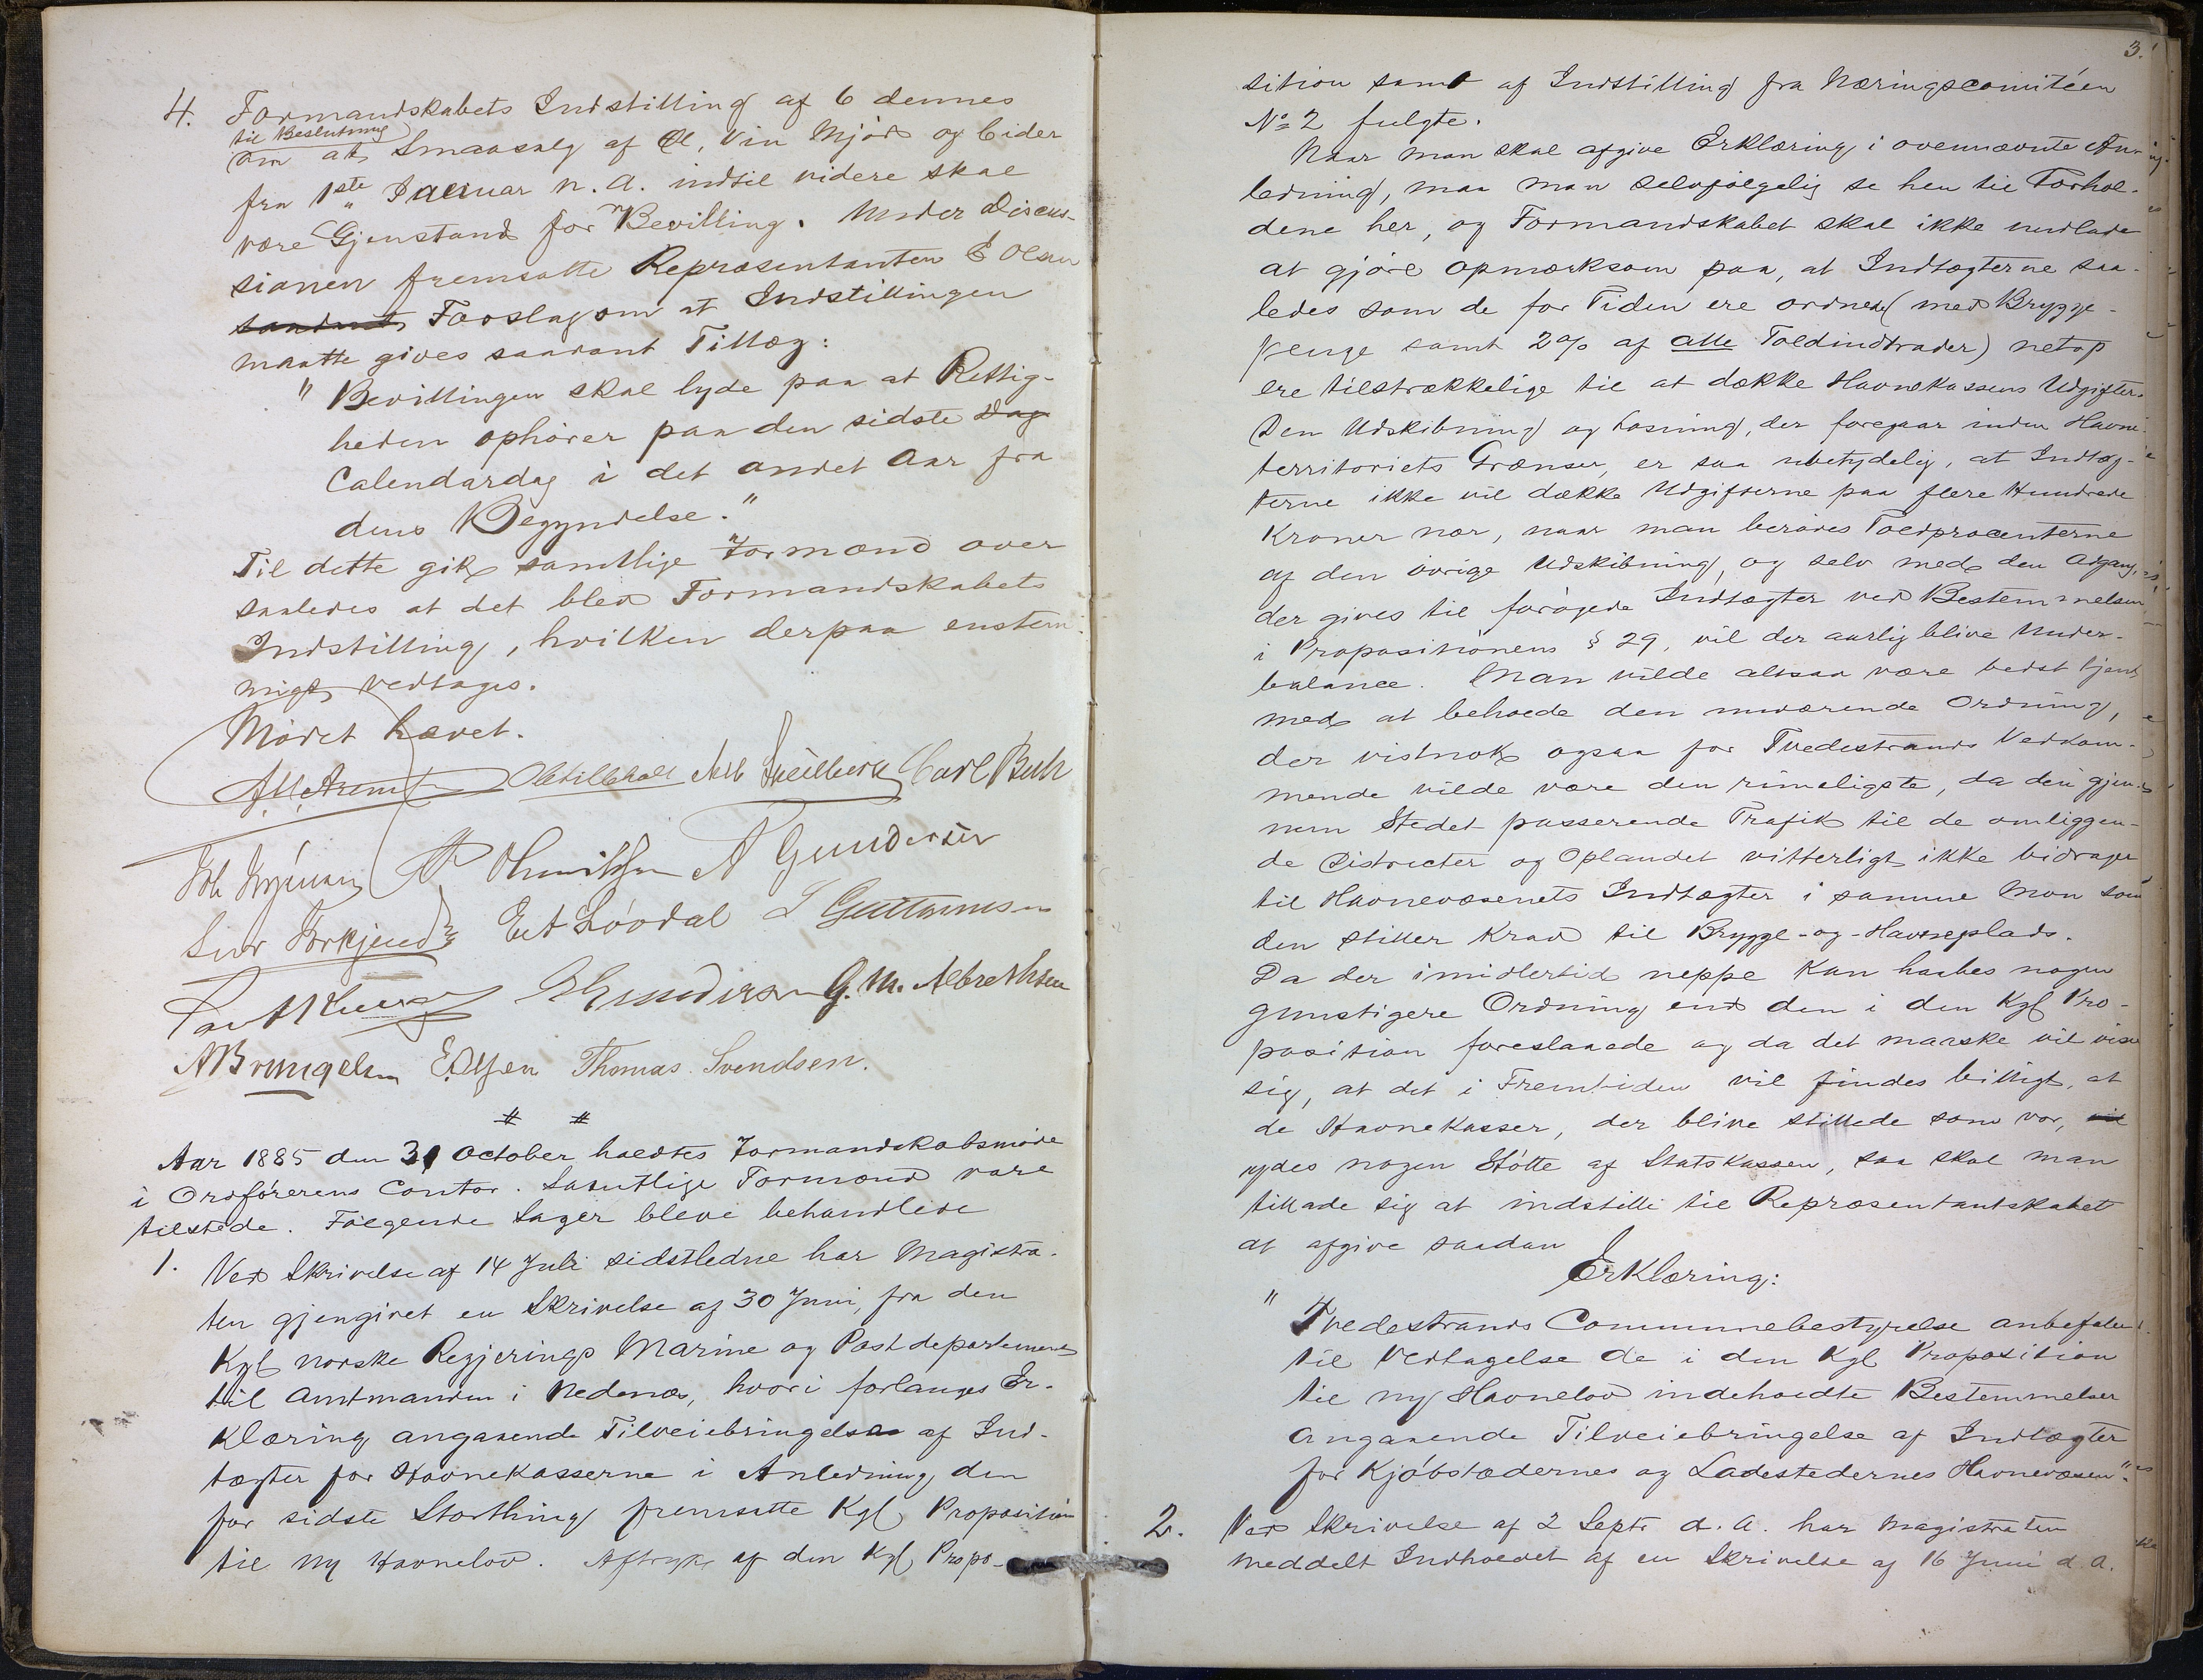 4. Formandskabets Indstilling af 6 dennes
til Beslutning
om at Smaasalg af Øl, Vin Mjød og Cider
fra 1ste Januar n. A. indtil videre skal
være Gjenstand for Bevilling. Under Discus-
sionen fremsatte Repræsentanten E Olsen
Forslag om at Indstillingen
maatte gives saadant Tillæg:
" Bevillingen skal lyde paa at Rettig-
heden ophører paa den sidste Dag
Calendardag i det andet Aar fra
dens Begyndelse."
Til dette gik samtlige Formænd over
saaledes at det blev Formandskabets
Indstilling, hvilken derpaa enstem-
migt vedtages.
Mødet hævet.
Carl Buhr
A Gundersen
Løvdal
G. M. Albrethsen
E. Olsen Thomas Svendsen.
Aar 1885 den 31 October holdtes Formandskabsmøde
i Ordførerens Contor. Samtlige Formænd vare
tilstede. Følgende Sager bleve behandlede
1. Ved Skrivelse af 14 Juli sidstledne har Magistra-
ten gjengivet en Skrivelse af 30 Juni, fra den
Kgl norske Regjerings Marine og Postdepartement
til Amtmanden i Nedenæs, hvori forlanges Er-
klæring angaaende Tilveiebringelse af Ind-
tægter for Havnekasserne i Anledning den
for sidste Storthing fremsatte Kgl Proposition
til ny Havnelov. Aftryk af den Kgl Propo-
3.
sition samt af Indstilling fra Næringscomitéen
No 2 fulgte.
Naar man skal afgive Erklæring i ovennævnte An-
ledning, maa man selvfølgelig se hen til Forhol-
dene her, og Formandskabet skal ikke undlade
at gjøre opmærksom paa, at Indtægterne saa-
ledes som de for Tiden ere ordnede (med Brygge-
penge samt 2% af alle Toldindtrader) netop
ere tilstrækkelige til at dække Havnekassens Udgifter.
Den Udskibning og Losning, der foregaar inden Havne-
territoriets Grænser, er saa ubetydelig, at Indtæg-
terne ikke vil dække Udgifterne paa flere Hundrede
Kroner nær, naar man berøves Toldprocenterne
af den øvrige Udskibning, og selv med den Adgang,
der gives til forøgede Indtægter ved Bestemmelsen
i Propositionens § 29, vil der aarlig blive Under-
balance. Man vilde altsaa være bedst tjent
med at beholde den nuværende Ordning,
der vistnok ogsaa for Tvedestrands Vedkom-
mende vilde være den rimeligste, da den gjen-
nem Stedet passerende Trafik til de omliggen-
de Districter og Oplandet vitterligt ikke bidrager
til Havnevæsenets Indtægter i samme Mon som
den stiller Krav til Brygge- og -Havneplads.
Da der imidlertid neppe kan haabes nogen
gunstigere Ordning end den i den Kgl Pro-
position foreslaaede og da det maaske vil vise
sig, at det i Fremtiden vil findes billigt, at
de Havnekasser, der blive stillede som vor, vil
ydes nogen Støtte af Statskassen, saa skal man
tillade sig at indstille til Repræsentantskabet
at afgive saadan
Erklæring:
" Tvedestrands Communebestyrelse anbefaler
til Vedtagelse de i den Kgl Proposition
til ny Havnelov indeholdte Bestemmelser
angaaende Tilveiebringelse af Indtægter
for Kjøbstædernes og Ladestedernes Havnevæsen".
2. Ved Skrivelse af 2 Septr d. A. har Magistraten
meddelt Indholdet af en Skrivelse af 16 Juni d. A.